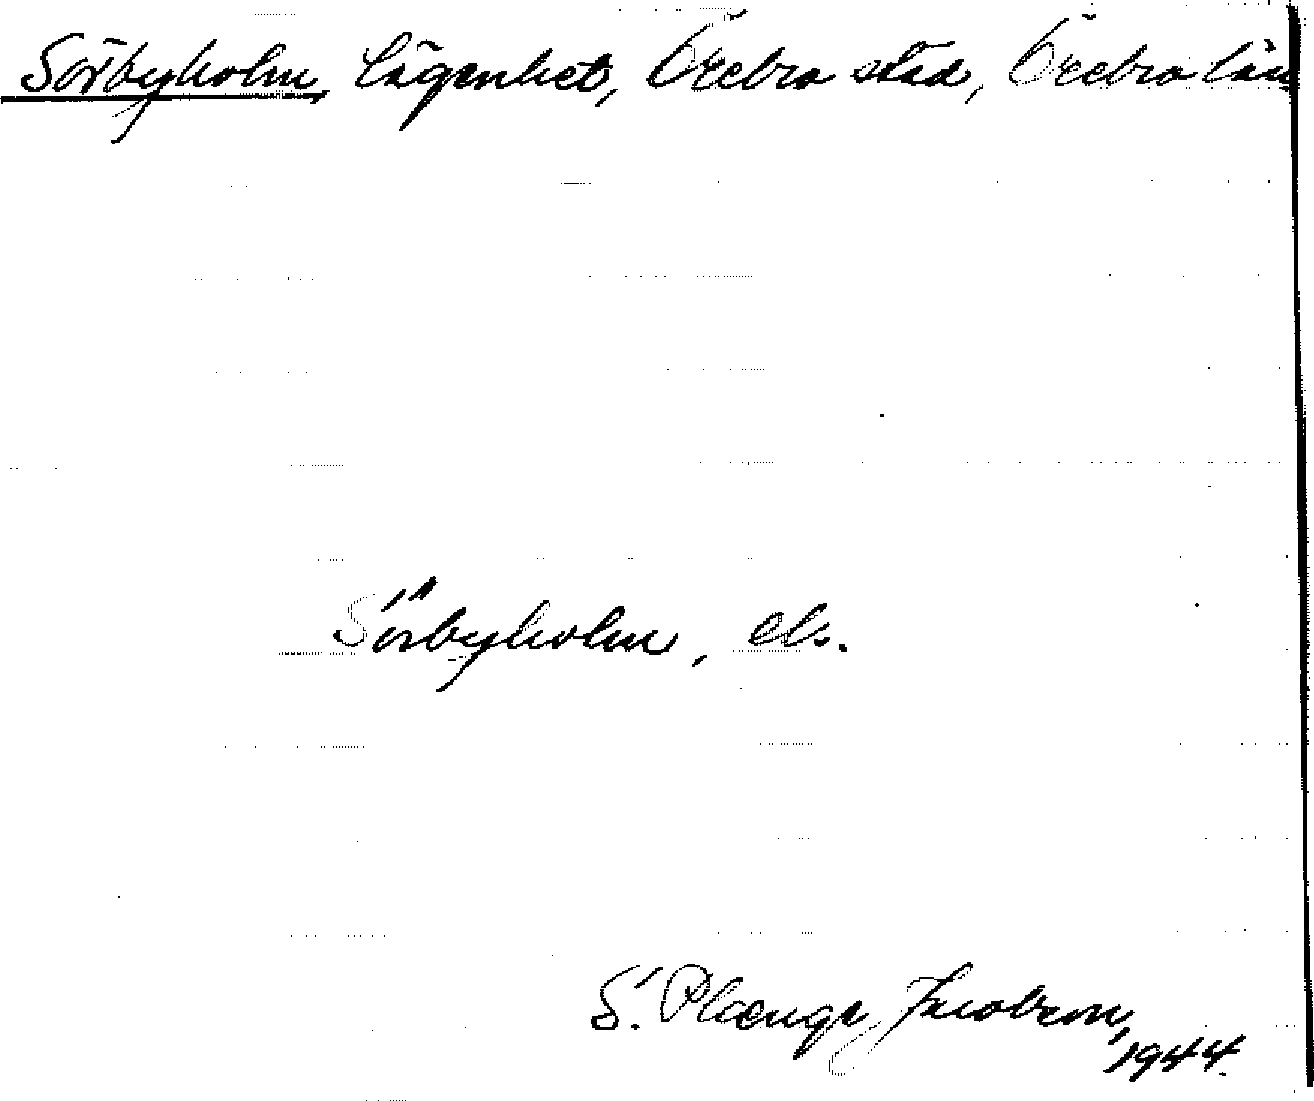 Sörbyholm, lägenhet, Örebro stad, Örebro län
Sörbyholm, els.
S. Plænge Jacobson,
1944.